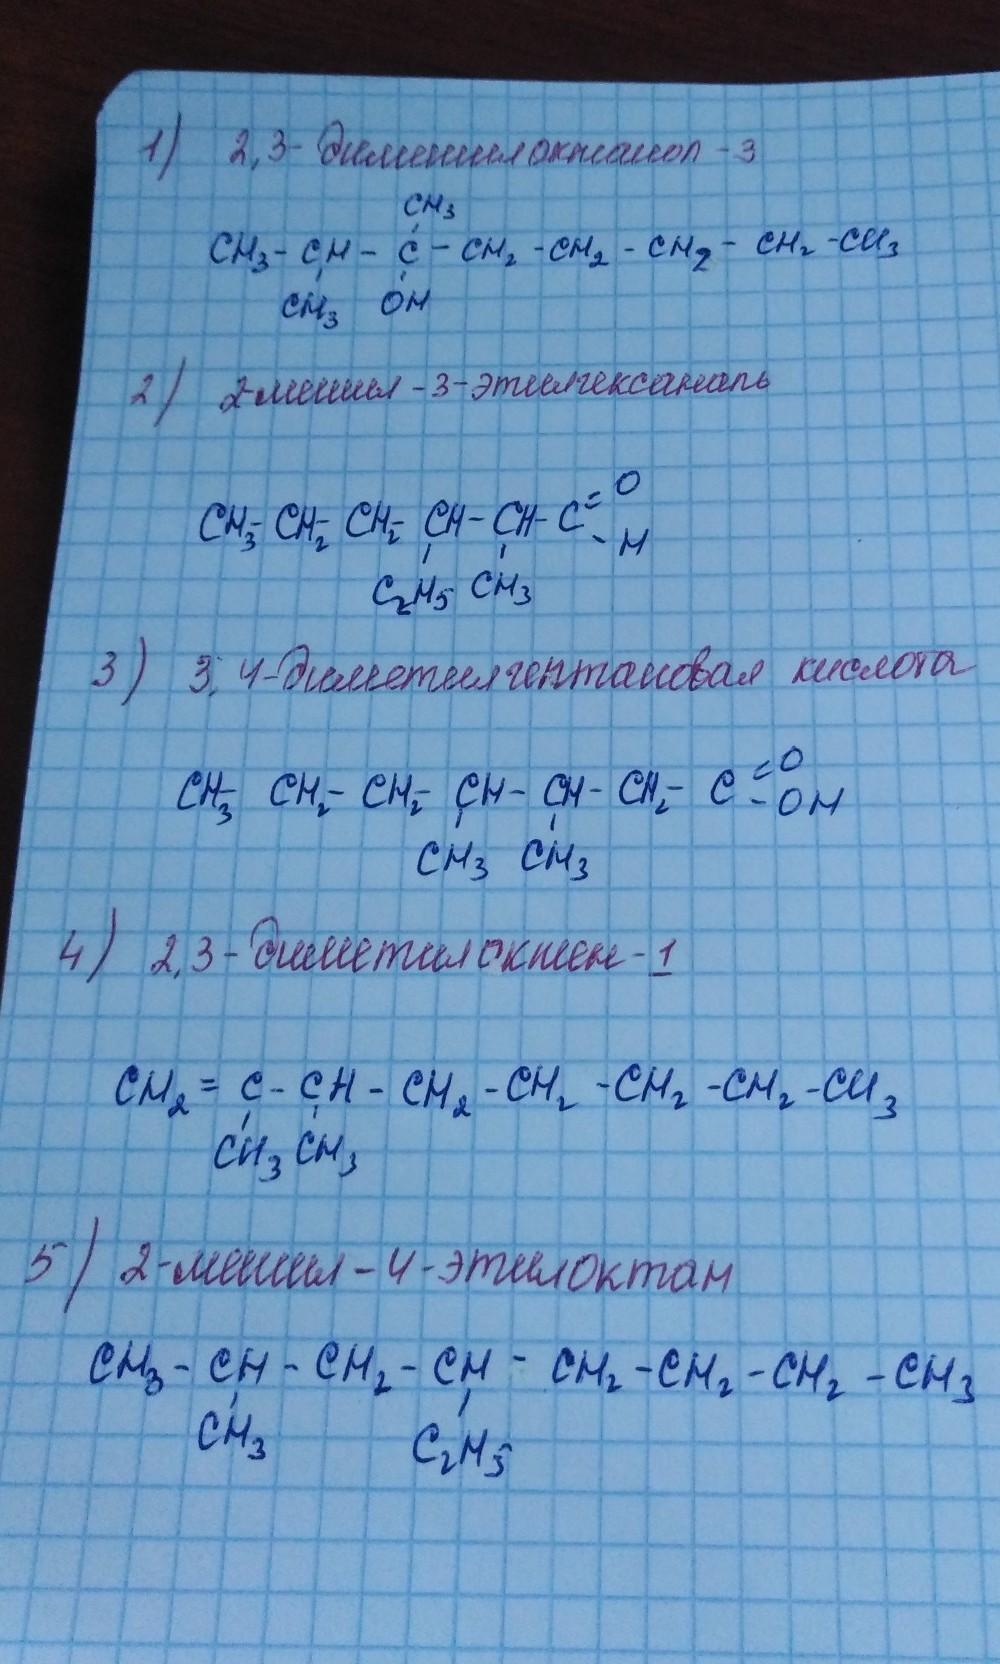 1) 2,3-диметилоктанол-3
CH3
CH3-CH-C-CH2-CH2-CH2-CH2-CH3
CH3 OH
2) 2-метил-3-этилгексаналь
O
CH3-CH2-CH2-CH-CH-C=
-H
C2H5 CH3
3) 3,4-диметилгептановая кислота
=O
CH3- CH2-CH2-CH-CH-CH2-C
-OH
CH3 CH3
4) 2,3-диметилоктен-1
CH2=C-CH-CH2-CH2-CH2-CH2-CH3
CH3 CH3
5) 2-метил-4-этилоктан
CH3-CH-CH2-CH-CH2-CH2-CH2-CH3
CH3 C2H5